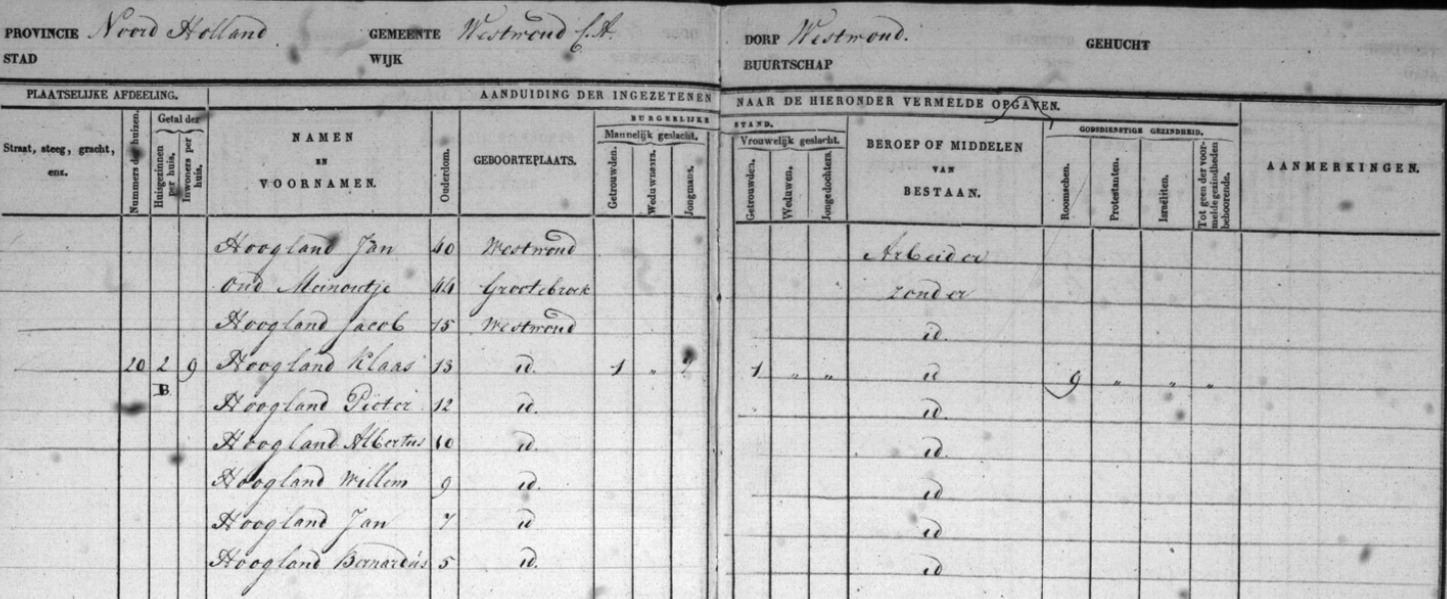 PROVINCIE Noord Holland GEMEENTE Westwoud c.A. DORP Westwoud. GEHUCHT
STAD WIJK BUURTSCHAP
PLAATSELIJKE AFDEELING. AANDUIDING DER INGEZETENEN NAAR DE HIERONDER VERMELDE OPGAVEN.
Straat, steeg, gracht, enz.
Nummers der huizen.
Getal der
Huisgezinnen per huis.
Inwoners per huis.
NAMEN
EN
VOORNAMEN.
Ouderdom.
GEBOORTEPLAATS.
BURGERLIJKE STAND.
Mannelijk geslacht.
Getrouwden.
Weduwnaers.
Jongmans.
Vrouwelijk geslacht.
Getrouwden.
Weduwen.
Jongedochters.
BEROEP OF MIDDELEN
VAN
BESTAAN.
GODSDIENSTIGE GEZINDHEID.
Roomschen.
Protestanten.
Israëliten.
Tot geen der voormelde gezindheden behoorende.
AANMERKINGEN.
Hoogland Jan 40 Westwoud Arbeider
Oud Meinoutje 44 Grootebroek zonder
Hoogland Jacob 15 Westwoud id.
20 2 9 Hoogland Klaas 13 id. 1 „ 7 1 „ „ id 9 „ „ „
B. Hoogland Pieter 12 id. id.
Hoogland Albertus 10 id. id.
Hoogland Willem 9 id. id
Hoogland Jan 7 id id
Hoogland Bernardus 5 id. id